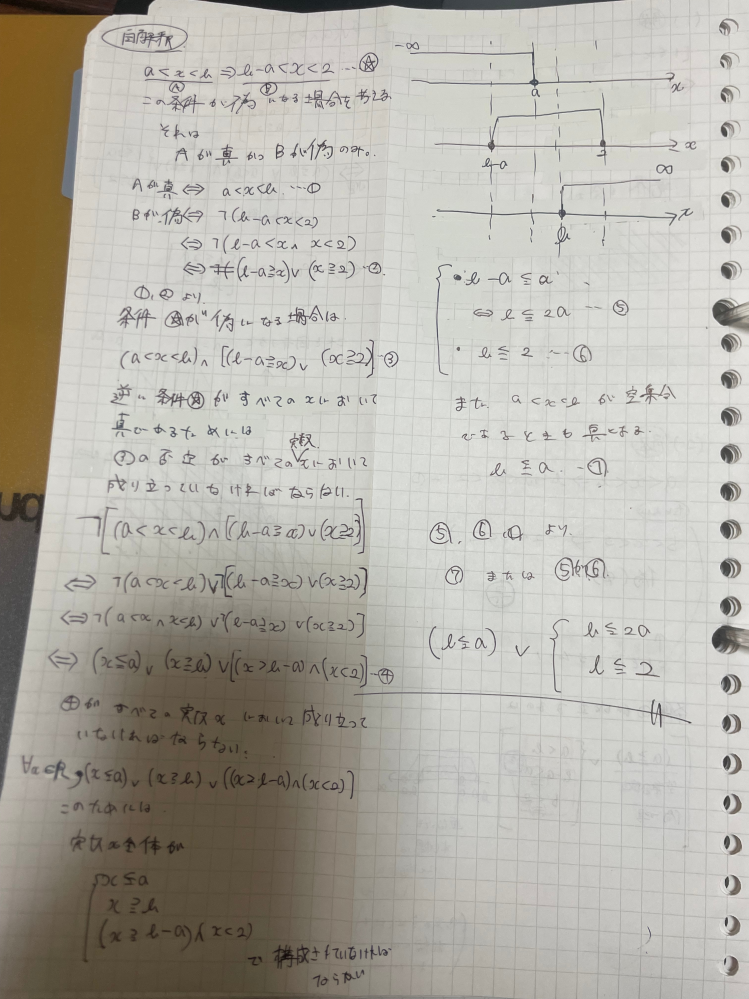 再解釈
a<x<b ⇒ b-a<x<2 …Ⓐ
Ⓐ Ⓑ
この条件が偽になる場合を考える
それは
Aが真かつBが偽のみ。
Aが真 ⇔ a<x<b …①
Bが偽 ⇔ ¬(b-a<x<2)
⇔ ¬(b-a<x ∧ x<2)
⇔ (b-a≧x)∨(x≧2) …②
①,②より
条件Ⓐが偽になる場合は
(a<x<b)∧[(b-a≧x)∨(x≧2)] …③
逆に条件Ⓐがすべてのxにおいて
真であるためには
③の否定がすべての実数xにおいて
成り立っていなければならない.
¬[(a<x<b)∧[(b-a≧x)∨(x≧2)]
⇔ ¬(a<x<b)∨¬[(b-a≧x)∨(x≧2)]
⇔ ¬(a<x∧x<b)∨¬[(b-a≧x)∨(x≧2)]
⇔ (x≦a)∨(x≧b)∨[(x>b-a)∧(x<2)] …④
④がすべての実数xにおいて成り立って
いなければならない.
∀x∈R,(x≦a)∨(x≧b)∨((x>b-a)∧(x<2)]
このためには
実数x全体が
x≦a
x≧b
(x≧b-a)∧(x<2)
で構成されていなければ
ならない
-∞
a
x
b-a
2
x
∞
b
x
・b-a≦a
⇔ b≦2a …⑤
・b≦2 …⑥
また a<x<b が空集合
であるときも真となる.
b≦a …⑦
⑤,⑥,⑦より
⑦ または ⑤かつ⑥
(b≦a) ∨ { b≦2a
b≦2